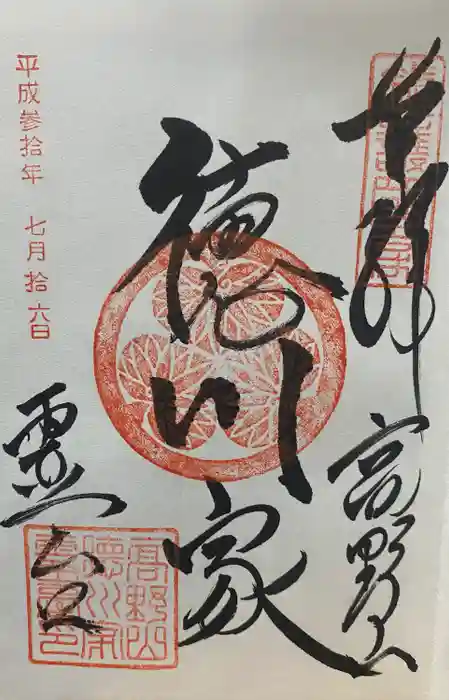 奉拝
高野山
徳川家
霊台
平成参拾年 七月拾六日
高野山
徳川家
霊台